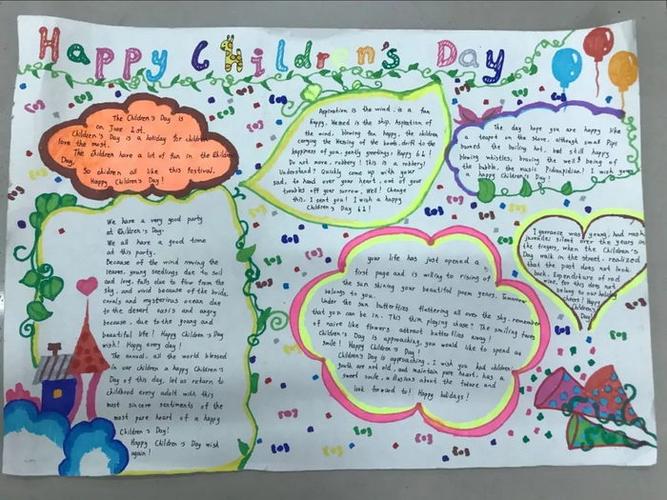 Happy Children's Day
The Children's Day is
on June 1st.
Children's Day is a holiday for children
love the most.
The children have a lot of fun in the Children
Day.
So children all like this festival.
Happy Children's Day!
Aspiration is the wind, is a fun
happy, Weimed is the ship, Aspiration of
the wind, blowing fun happy, the children
carrying the blessing of the bomb, drift to the
happiness of you, gently greetings: Happy 61!
Do not move, robbery! This is a robbery!
Understand? Quickly come up with your
sad, to hand over your heart, out of your
troubles off your sorrow, Well! Change
this, I sent you! I wish a happy
Children's Day 61!
The day hope you are happy like
a teapot on the stove, although small Pipi
burned the boiling hot, but still happy
blowing whistles, braving the well being of
the bubble, the music
I wish you
happy Children's Day!
We have a very good party
at Children's Day.
We all have a good time
at this party.
Because of the wind moving the
leaves, young seedlings due to soil
and long, falls due to flow from the
sky, and vivid because of the birds,
corals and mysterious ocean due
to the desert oasis and angry
because, due to the young and
beautiful life! Happy Children's Day
wish! Happy every day!
The annual, all the world blessed
in our children a happy Children's
Day of this day, let us return to
childhood every adult with this
most sincere sentiments of the
most pure heart of a happy
Children's Day!
Happy Children's Day wish
again!
your life has just opened a
first page and is willing to rising of
the sun shining your beautiful poem years. Tomorrow
belongs to you.
Under the sun butterflies fluttering all over the sky, remember
that you can be in. This them playing chase? The smiling faces
of naive like flowers attract butterflies away!
Children's Day is approaching, you would like to spend as
smile! Happy Children's Day!
Children's Day is approaching. I wish you had children
youth are not old, and maintain pure hearts, has
sweet smile, a illusion about the future and
look forward to! Happy holidays!
I ignorance was young, and rush
juvenile, silent over the years in
the fingers, when the Children's
Day walk in the street, realized
that the past does not look
back. Expenditure of red
wine, for this does not
belong to our holiday
cheers! Happy
Children's
Day!